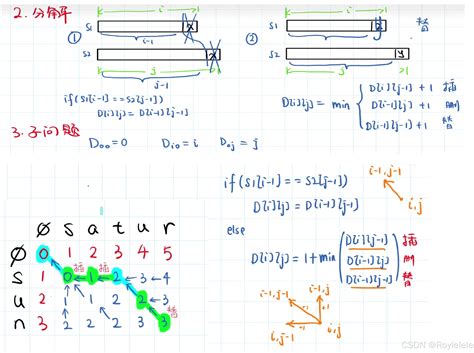 2. 分命平
S1
i
x
i-1
①
S2
j
x
j-1
if(S1[i-1]==S2[j-1])
D[i][j]=D[i-1][j-1]
②
S1
i
S2
j
y
替
D[i][j]=min
D[i][j-1]+1 插
D[i-1][j]+1 删
D[i-1][j-1]+1 替
3. 子问题
D₀₀=0 Dᵢ₀=i D₀ⱼ=j
if(S1[i-1]==S2[j-1])
D[i][j]=D[i-1][j-1]
else
D[i][j]=1+min
D[i][j-1] 插
D[i-1][j] 删
D[i-1][j-1] 替
i-1,j-1
i,j
i-1,j-1
i-1,j
i,j
∅ s a t u r
∅ 0 1 2 3 4 5
插 插
s 1 0 1 2 3 4
u 2 1 1 2 2 3
替
n 3 2 2 2 3 3
CSDN @Royielele